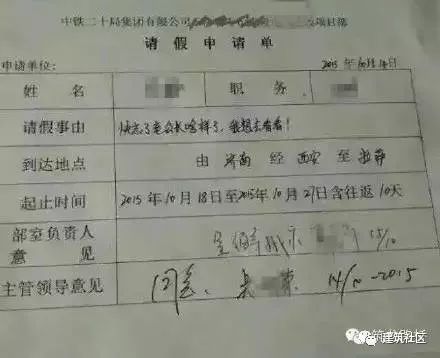 中铁二十局集团有限公司 项目部
请假申请单
申请单位： 2015年10月14日
姓名 职务
请假事由 快忘了老公长啥样了，我想去看看！
到达地点 由 济南 经 西安 至
起止时间 2015年10月18日至2015年10月27日含往返10天
部室负责人
意见 15/10
主管领导意见 同意、 14/10-2015
建筑社区